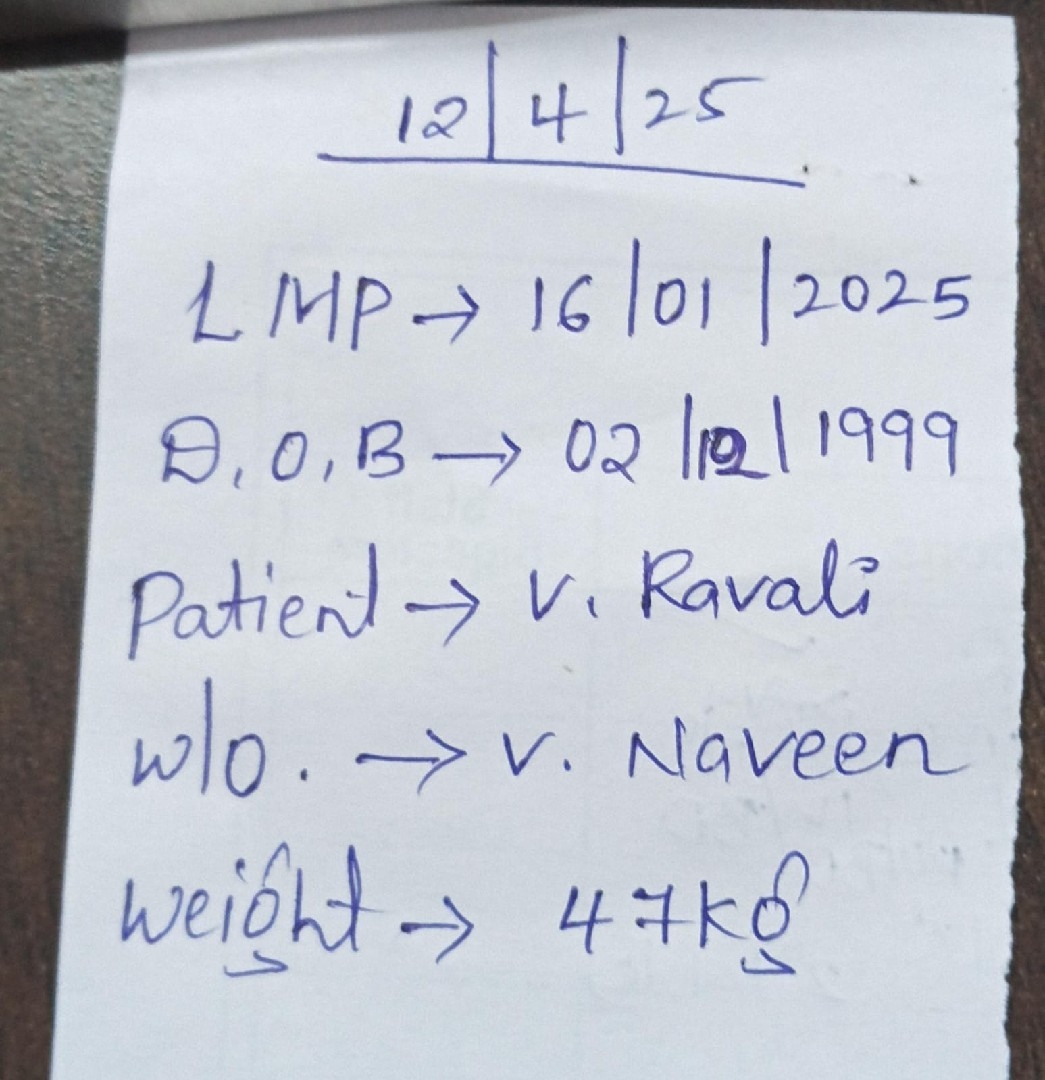 12/4/25
LMP → 16/01/2025
D.O.B → 02/12/1999
Patient → V. Ravali
w/o. → V. Naveen
weight → 47kg